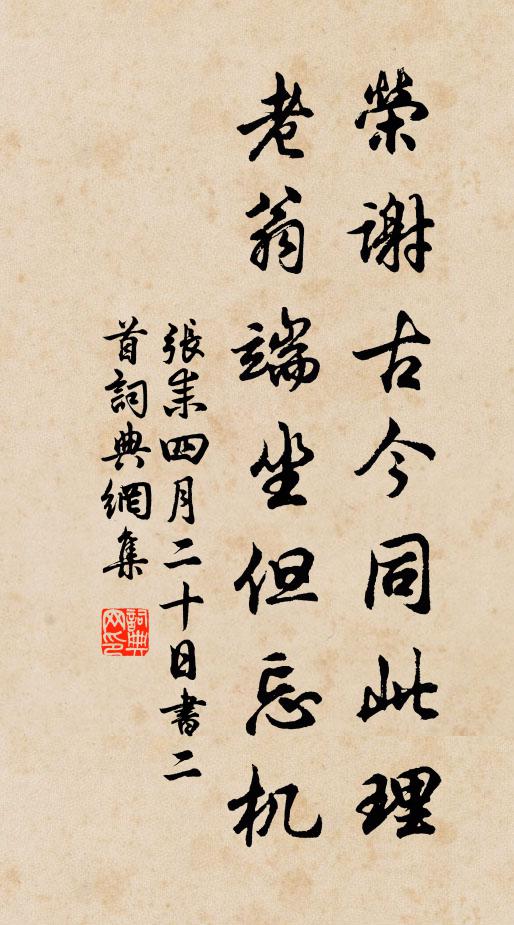 榮謝古今同此理
老翁端坐但忘机
張耒四月二十日書二
首詞典網集
詞典
网印